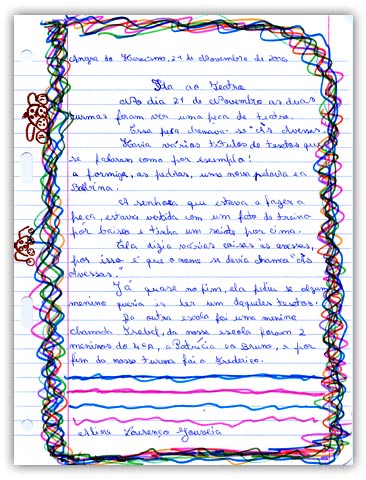 Angra do Heroísmo, 21 de Novembro de 2006
Ida ao Teatro
No dia 21 de Novembro as duas
turmas foram ver uma peça de teatro.
Essa peça chamava-se "Às avessas.
Havia vários títulos de textos que
se falaram como por exemplo:
a formiga, as pedras, uma nova palavra e a
Sabrina.
A senhora que estava a fazer a
peça, estava vestida com um fato de treino
por baixo e tinha um vestido por cima.
Ela dizia várias coisas às avessas,
por isso é que o nome se devia chamar "Às
avessas."
Já quase no fim, ela pediu se algum
menino queria ir ler um daqueles textos.
Da outra escola foi uma menina
chamada Isabel, da nossa escola foram 2
meninos do 4ºA, a Patrícia e o Bruno, e por
fim da nossa turma foi a Frederico.
Alina Lourenço Gouveia